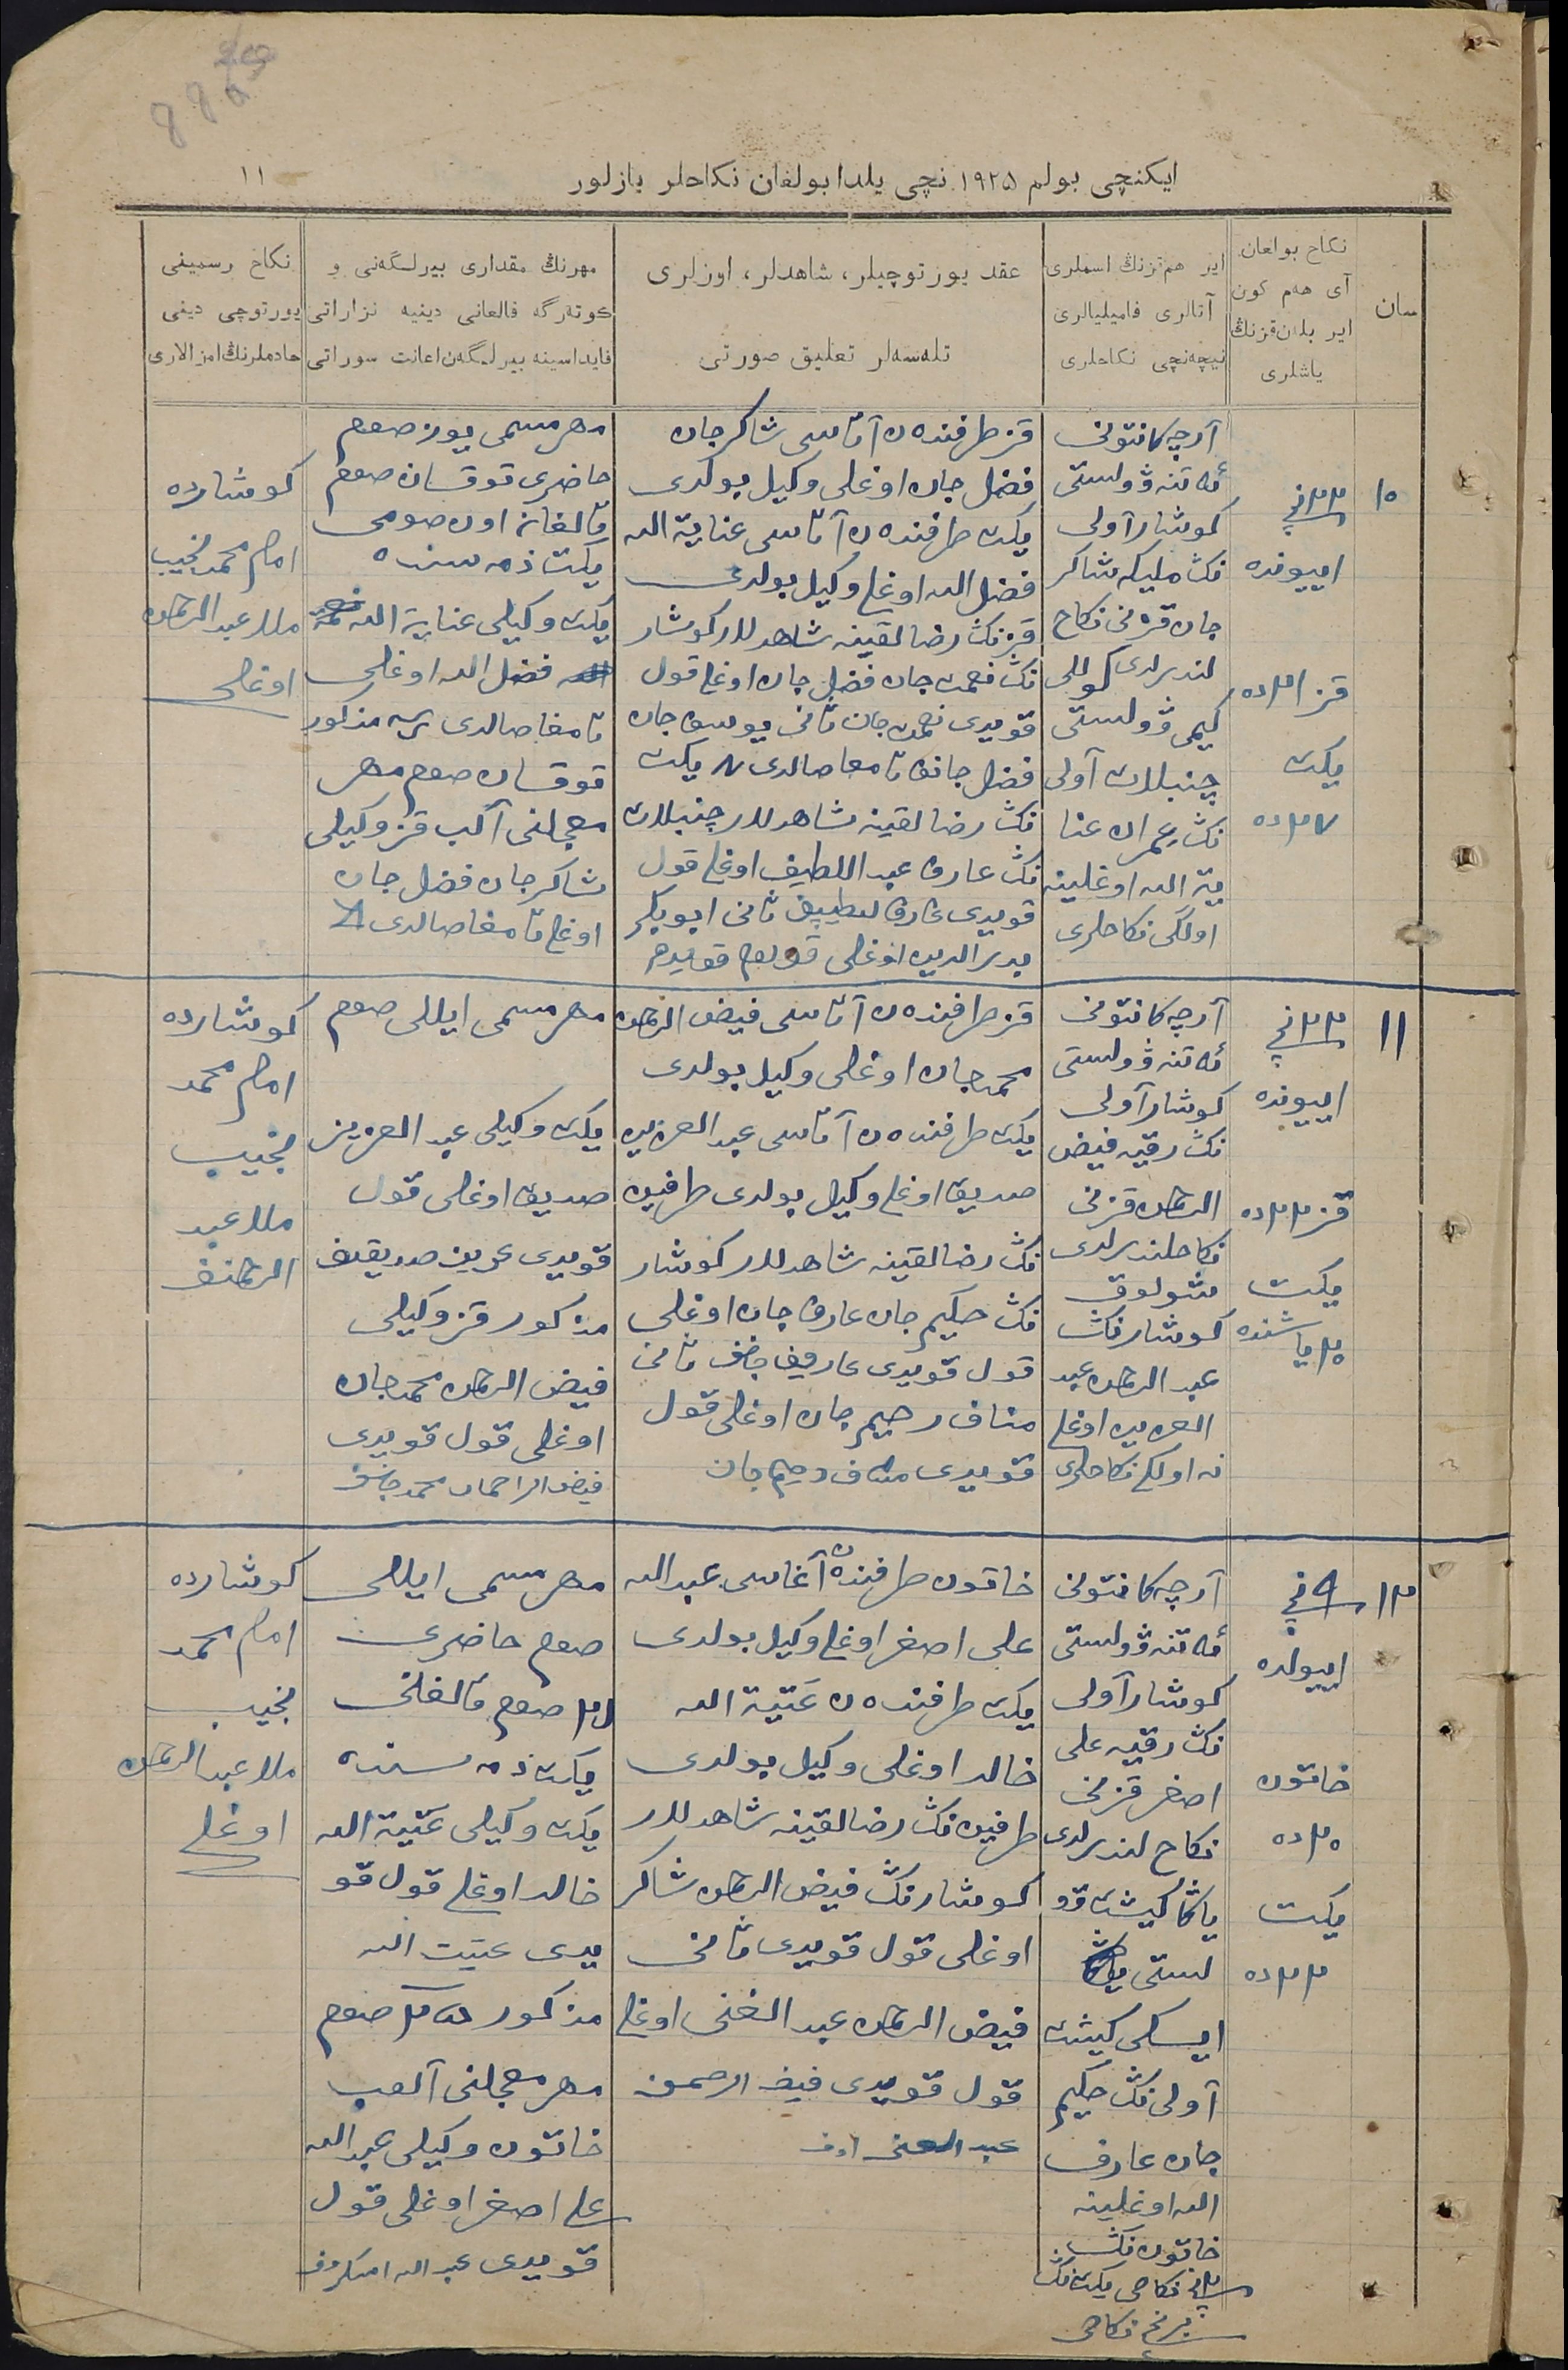 ایکنچی بولم ١٩٢٥ نچی یلدا بولغان نکاحلر یازلور
١١
سان
نکاح بولغان
آی هەم کون
ایر بلەن قزنڭ
یاشلری
ایر هم قزنڭ اسملری
آتالری فامیلیالری
نیچەنچی نکاحلری
عقد یورتوچیلر، شاهدلر، اوزلری
تلەسەلر تعلیق صورتی
مهرنڭ مقداری بیرلگەنی و
کوتەرگە قالغانی دینیە نزاراتی
فایداسینە بیرلگەن اعانت سوراتی
نکاح رسمینی
یورتوچی دینی
خادملرنڭ امزالاری
١٠
٢٣ نچی
اییونده
قز ٢١ ده
یکت
٢٧ ده
آرچه کانتونی
ئەتنە ۋولستی
کوشار آولی
نڭ ملیکه شاکر
جان قزنی نکاح
لندرلدی کوللی
کیمی ۋولستی
چنبلات آولی
نڭ عمران عنا
یة الله اوغلینه
اولگی نکاحلری
قز طرفندەن آتاسی شاکرجان
فضل جان اوغلی وکیل بولدی
یکت طرفندەن آتاسی عنایة الله
فضل الله اوغلی وکیل بولدی
قزنڭ رضالقینه شاهدلر کوشار
نڭ نعمت جان فضل جان اوغلی قول
قویدی نعمت جان ثانی یوسف جان
فضل جانف تامغا صالدی یکت
نڭ رضالقینه شاهدلر چنبلات
نڭ عارف عبد اللطیف اوغلی قول
قویدی عارف لطیپف ثانی ابوبکر
بدر الدین اوغلی قولم قویدم
مهر مسمی یوز صوم
حاضری توقسان صوم
قالغان اون صومی
یکت ذمەسندە
یکت وکیلی عنایة الله
فضل الله اوغلی
تامغا صالدی مذکور
توقسان صوم مهر
معجلنی آلب قز وکیلی
شاکرجان فضل جان
اوغلی تامغا صالدی
کوشارده
امام محمد نجیب
ملا عبد الرحمان
اوغلی
١١
٢٣ نچی
اییونده
قز ٢٢ ده
یکت
٢٥ یاشنده
آرچه کانتونی
ئەتنە ۋولستی
کوشار آولی
نڭ رقیه فیض
الرحمان قزنی
نکاحلندرلدی
شولوق
کوشارنڭ
عبد الرحمان عبد
العزیز اوغلی
نه اولگی نکاحلری
قز طرفندەن آتاسی فیض الرحمان
محمد جان اوغلی وکیل بولدی
یکت طرفندەن آتاسی عبد العزیز
صدیق اوغلی وکیل بولدی طرفین
نڭ رضالقینه شاهدلر کوشار
نڭ حکیم جان عارف جان اوغلی
قول قویدی عاریف جانف ثانی
مناف رحیم جان اوغلی قول
قویدی مناف رحیم جان
مهر مسمی ایللی صوم
یکت وکیلی عبد العزیز
صدیق اوغلی قول
قویدی عزیز صدیقف
مذکور قز وکیلی
فیض الرحمان محمد جان
اوغلی قول قویدی
فیض الراحمان محمد جانف
کوشارده
امام محمد
نجیب
ملا عبد
الرحمانف
١٢
٩ نچی
اییولده
خاتون
٢٠ ده
یکت
٢٣ ده
آرچه کانتونی
ئەتنە ۋولستی
کوشار آولی
نڭ رقیه علی
اصغر قزنی
نکاح لندرلدی
یاڭا کیشت ۋو
لستی
ایسکی کیشت
آولی نڭ حکیم
جان عارف
الله اوغلینه
خاتون نڭ
٢ نچی نکاحی یکت نڭ
برنچی نکاحی
خاتون طرفندەن آغاسی عبد الله
علی اصغر اوغلی وکیل بولدی
یکت طرفندەن عتیة الله
خالد اوغلی وکیل بولدی
طرفین نڭ رضالقینه شاهدلر
کوشارنڭ فیض الرحمان شاکر
اوغلی قول قویدی ثانی
فیض الرحمان عبد الغنی اوغلی
قول قویدی فیض الرحمن
عبد الغنی اوف
مهر مسمی ایللی
صوم حاضری
صوم قالغنی
یکت ذمەسندە
یکت وکیلی عتیة الله
خالد اوغلی قول قو
یدی عتیت الله
مذکور صوم
مهر معجلنی آلوب
خاتون وکیلی عبد الله
علی اصغر اوغلی قول
قویدی عبد الله
کوشارده
امام محمد
نجیب
ملا عبد الرحمان
اوغلی